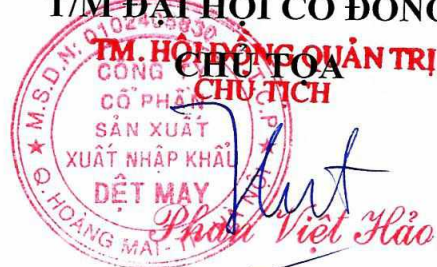 T/M ĐẠI HỘI CỔ ĐÔNG
TM. HỘI ĐỒNG QUẢN TRỊ
CHỦ TỌA
CHỦ TỊCH
M.S.D.N:
CÔNG TY
CỔ PHẦN
SẢN XUẤT
XUẤT NHẬP KHẨU
DỆT MAY
Q. HOÀNG MAI
Phan Việt Hảo